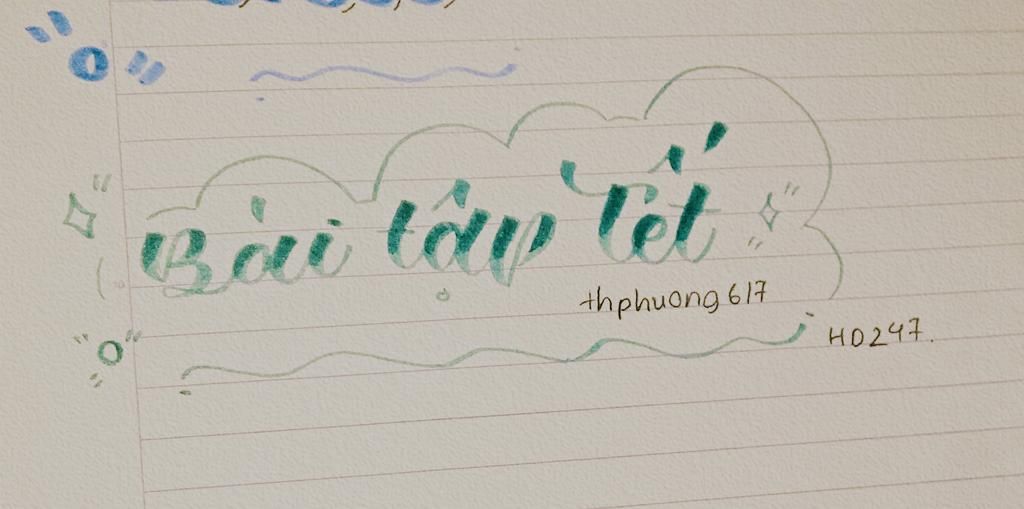 Bài tập Tết
thphuong617
HD247.